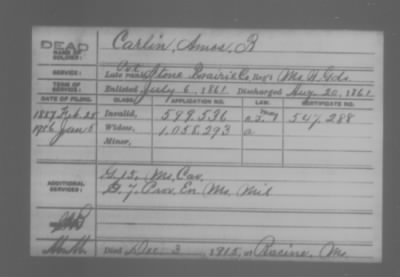 DEAD
NAME OF SOLDIER: Carlin, Amos, B
SERVICE: Late rank, Pvt Stone Prairie Co Reg't Mo H Gds.
TERM OF SERVICE: Enlisted July 6, 1861 Discharged Aug. 20, 1861
DATE OF FILING. CLASS. APPLICATION NO. LAW. CERTIFICATE NO.
1887 Feb. 28 Invalid, 599.596 547.288
Jan 15 Widow, 1.058.293 a
Minor,
ADDITIONAL SERVICES: G. 15, Mo. Cav.
G. 7. Prov. En. Mo. Mil
Died Dec. 3, 1915, at Racine, Mo.